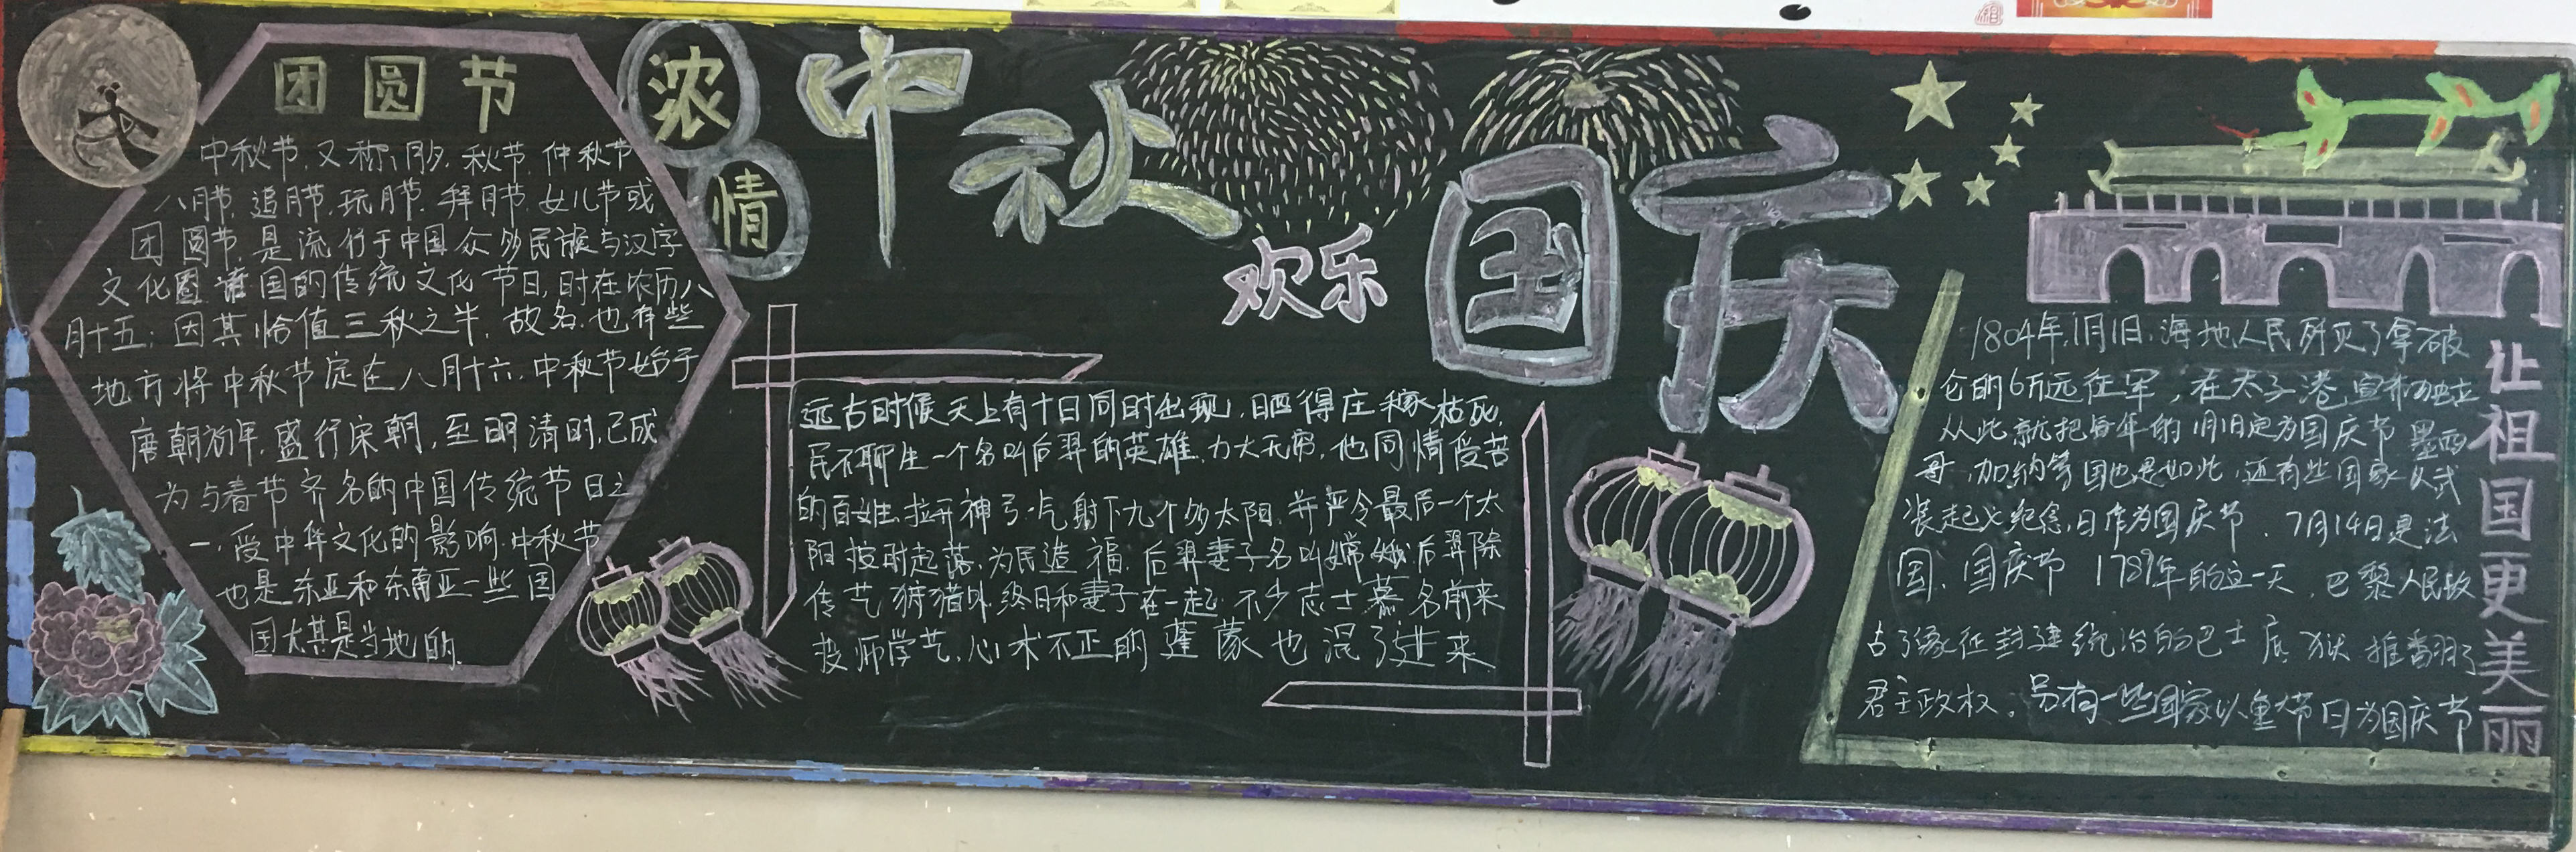 团圆节
中秋节,又称月夕,秋节,仲秋节
八月节,追月节,玩月节,拜月节,女儿节或
团圆节,是流行于中国众多民族与汉字
文化圈诸国的传统文化节日,时在农历八
月十五;因其恰值三秋之半,故名,也有些
地方将中秋节定在八月十六,中秋节始于
唐朝初年,盛行宋朝,至明清时,已成
为与春节齐名的中国传统节日之
一,受中华文化的影响,中秋节
也是东亚和东南亚一些国
国尤其是当地的
浓情
中秋
欢乐
国庆
远古时候天上有十日同时出现,晒得庄稼枯死,
民不聊生一个名叫后羿的英雄,力大无穷,他同情受苦
的百姓,拉开神弓一气射下九个多太阳,并严令最后一个太
阳按时起落,为民造福,后羿妻子名叫嫦娥,后羿除
传艺狩猎外,终日和妻子在一起,不少志士慕名前来
投师学艺,心术不正的蓬蒙也混了进来
1804年,1月1日,海地人民所灭了拿破
仑的6万远征军,在太子港宣布独立
从此就把每年的1月1日定为国庆节 墨西
哥,加纳等国也是如此,还有些国家以武
装起义纪念日作为国庆节.7月14日是法
国、国庆节 1789年的这一天,巴黎人民攻
占了象征封建统治的巴士底狱 推翻了
君主政权。另有一些国家以重大节日为国庆节
让祖国更美丽